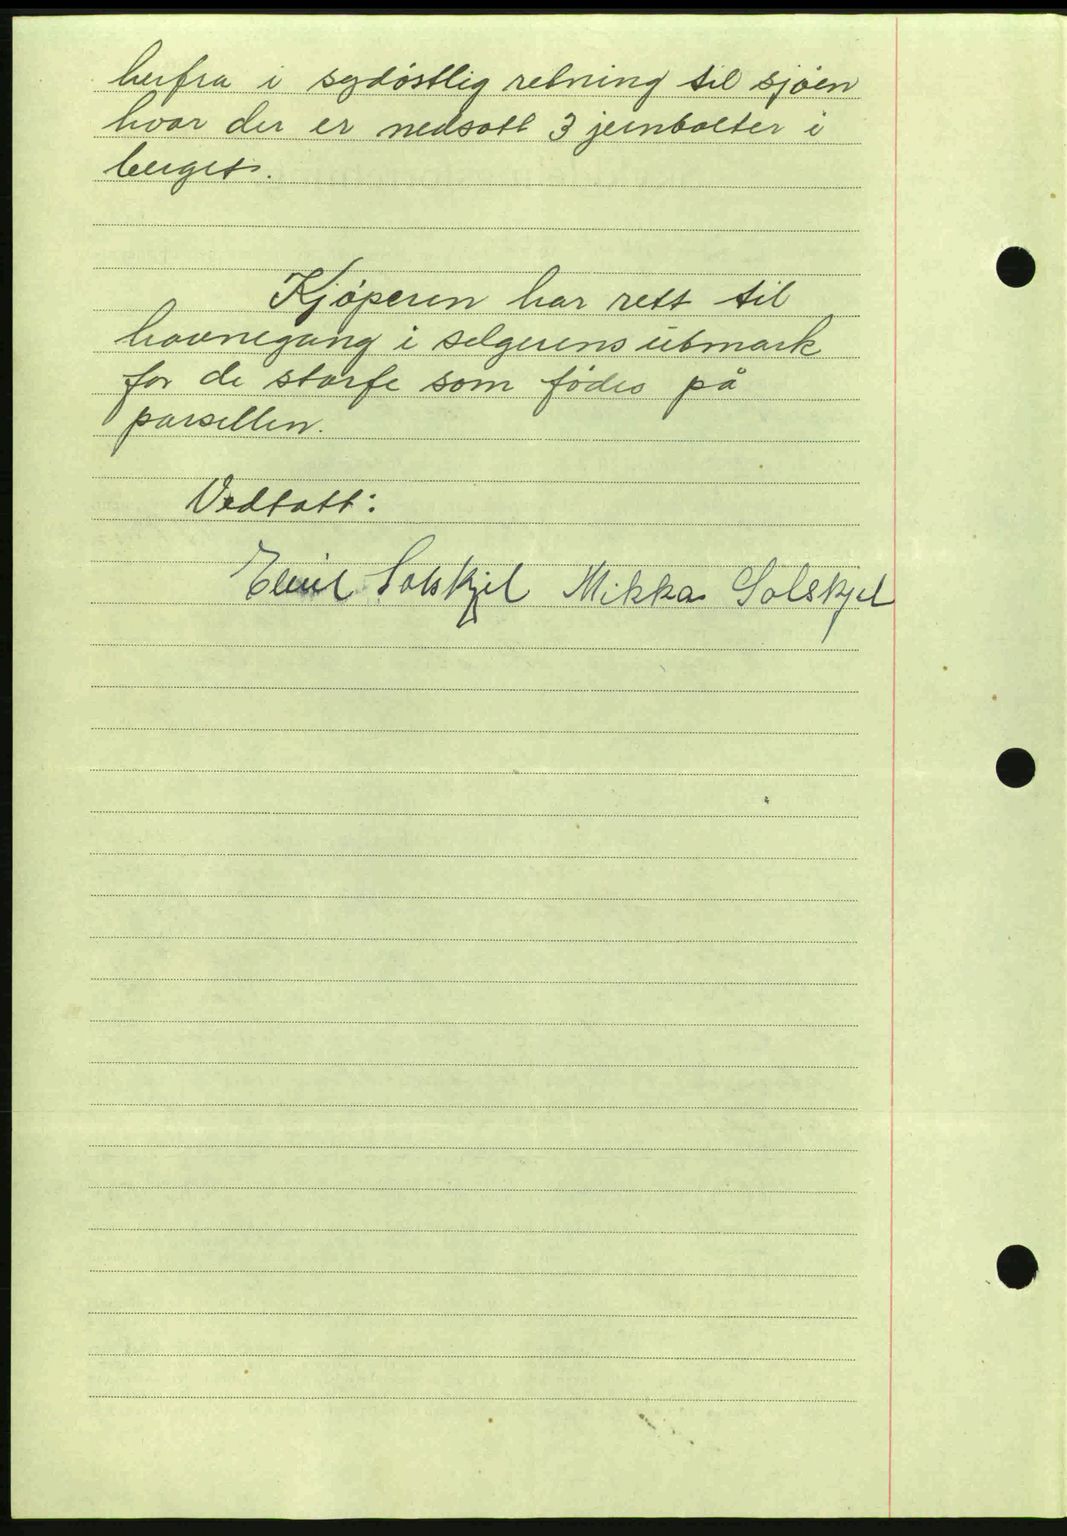 herfra i sydöstlig retning til sjöen
hvor der er nedsatt 3 jernbolter i
berget.
Kjöperen har rett til
havnegang i selgerens utmark
for de storfe som födes på
parsellen.
Vedtatt:
Emil Solskjel Mikka Solskjel